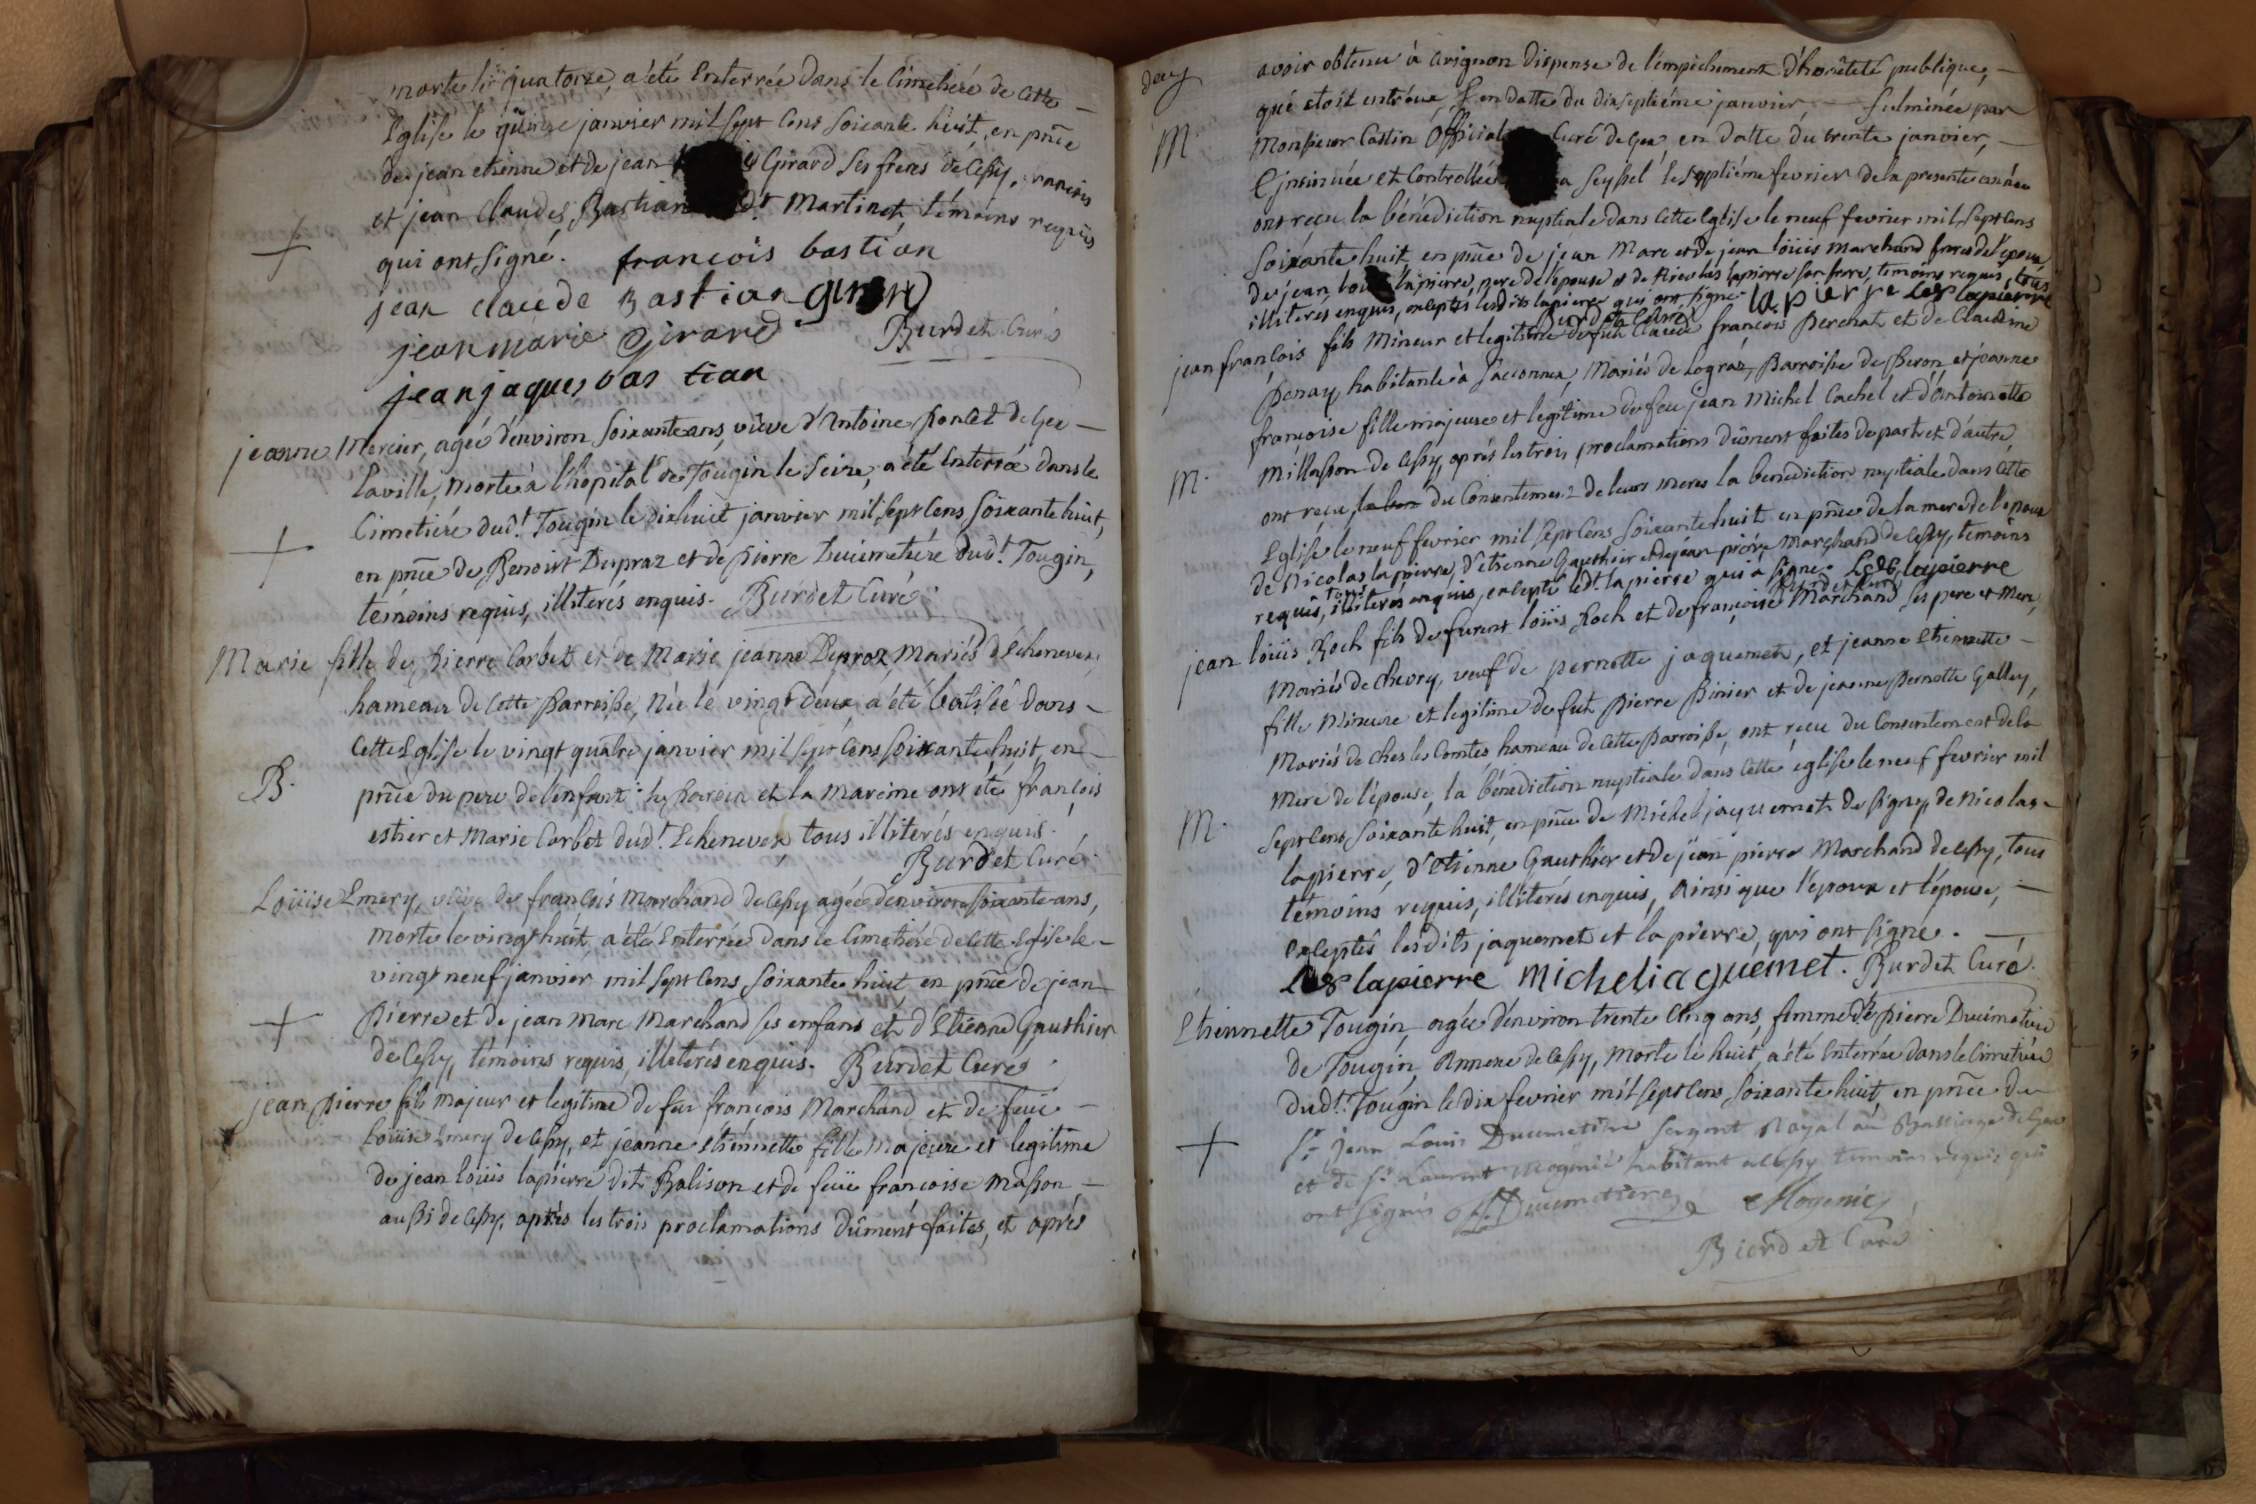 morte le quatorze, a été Enterrée dans le Cimetiére de cette
Eglise le quinze janvier mil sept Cens soixante huit, en pñce
de jean etienne et de jean Girard ses freres de Cessy, francois
et jean claude Bastian dt Martinet, témoins requis
qui ont signé. françois bastian
jean claude Bastian girard
jean marie Girard Burdet Curé
jean jaques bastian
jeanne Mercier, agée d'environ soixante ans, vüeve d'Antoine Poncet de Gex
la ville, morte à l'hopital de Tougin le seize, a été Enterrée dans le
Cimetiére dudt Tougin le dixhuit janvier mil sept Cens soixante huit,
en pñce de Benoist Dupraz et de pierre Ducimetiére dudt. Tougin,
témoins requis, illiterés enquis. Burdet Curé
Marie fille de pierre Corbet et de Marie jeanne Depraz, Mariés d'Echenevex,
hameau de cette parroisse, Née le vingt deux a été batisée dans
Cette Eglise le vingt quatre janvier mil sept Cens soixante huit, en
B. pñce du pere de l'enfant: le paroin et la mareine ont été françois
estier et Marie Corbet dudt. Echenevex, tous illiterés enquis.
Burdet Curé
Loüise Emery, vüeve de francois Marchand de Cessy agée d'environ soixante ans,
morte le vingt huit, a été Enterrée dans le Cimetiére de cette Eglise le
vingt neuf janvier mil sept Cens soixante huit, en pñce de jean
pierre et de jean Marc Marchand ses enfans et d'Etienne Gauthier
de Cessy, témoins requis, illiterés enquis. Burdet Curé
jean pierre fils majeur et legitime de feu françois Marchand et de feüe
Loüise Emery de Cessy, et jeanne etiennette fille majeure et legitime
de jean loüis lapierre dit Balison et de feüe francoise Masson
aussi de Cessy, aprés les trois proclamations dûment faites, et aprés
avoir obtenu à Avignon Dispense de l'empéchement d'honêteté publique,
qué etoit entr'eux, en datte du dixseptiéme janvier, fulminée par
M Monsieur Castin Official Curé de Gex, en datte du trente janvier,
Ejnsinuée et Controllée a Seyssel le septiéme fevrier de la presente année
ont reçu la bénédiction nuptiale dans Cette Eglise le neuf fevrier mil sept Cens
soixante huit, en pñce de jean Marc et de jean loüis marchand freres de l'epoux
de jean louis lapierre, pere de l'epouse et de Nicolas lapierre son frere, temoins requis, tous
illiterés enquis, exceptés lesdits lapierre qui ont signé. lapierre lapierre
Burdet Curé
jean françois fils Mineur et legitime de fut Claude françois Perchat et de Claudine
Penay, habitante à Sacconnex, Mariés de Lograz, Parroisse de Peron, et jeanne
françoise fille majeure et legitime de feu jean Michel Cachet et d'antoinette
M. Millasson de Cessy, aprés les trois proclamations dûment faites de part et d'autre,
ont reçu, du Consentement de leurs meres la benediction nuptiale dans Cette
Eglise le neuf fevrier mil sept Cens soixante huit en pñce de la mere de l'epoux
de Nicolas lapierre, d'etienne Gauthier et de jean pierre Marchand de Cessy, temoins
requis, tous illiterés enquis, excepté ledt lapierre qui a signé. lapierre
Burdet Curé
jean loüis Roch fils de furent loüis Roch et de françoise Marchand ses pere et Mere,
Mariés de Chevry, veuf de pernette jaquemet, et jeanne Etiennette
fille Mineure et legitime de fut pierre Pinier et de jeanne pernette Galley,
Mariés de Ches les Comtes, hameau de Cette Parroisse, ont reçu du Consentement de la
Mere de l'épouse, la bénédiction nuptiale dans Cette église le neuf fevrier mil
M. sept Cens soixante huit, en pñce de Michel jaquemet de Signy, de Nicolas
lapierre, d'etienne Gauthier et de jean pierre Marchand de Cessy, tous
témoins requis, illiterés enquis, Ainsi que l'epoux et l'épouse,
exceptés lesdits jaquemet et lapierre, qui ont signé.
lapierre Michel iaquemet. Burdet Curé
Etiennette Tougin, agée d'environ trente Cinq ans, femme de pierre Ducimetiére
de Tougin, Annexe de Cessy, morte le huit, a été Enterrée dans le Cimetiére
dudt. Tougin le dix fevrier mil sept Cens soixante huit, en pñce de
sr. Jean Louis Ducimetiére sergent Royal au Bailliage de Gex
et de sr. Laurent Mogenié habitant a Cessy temoins requis qui
ont signés Ducimetiere Mogenie
Burdet Curé